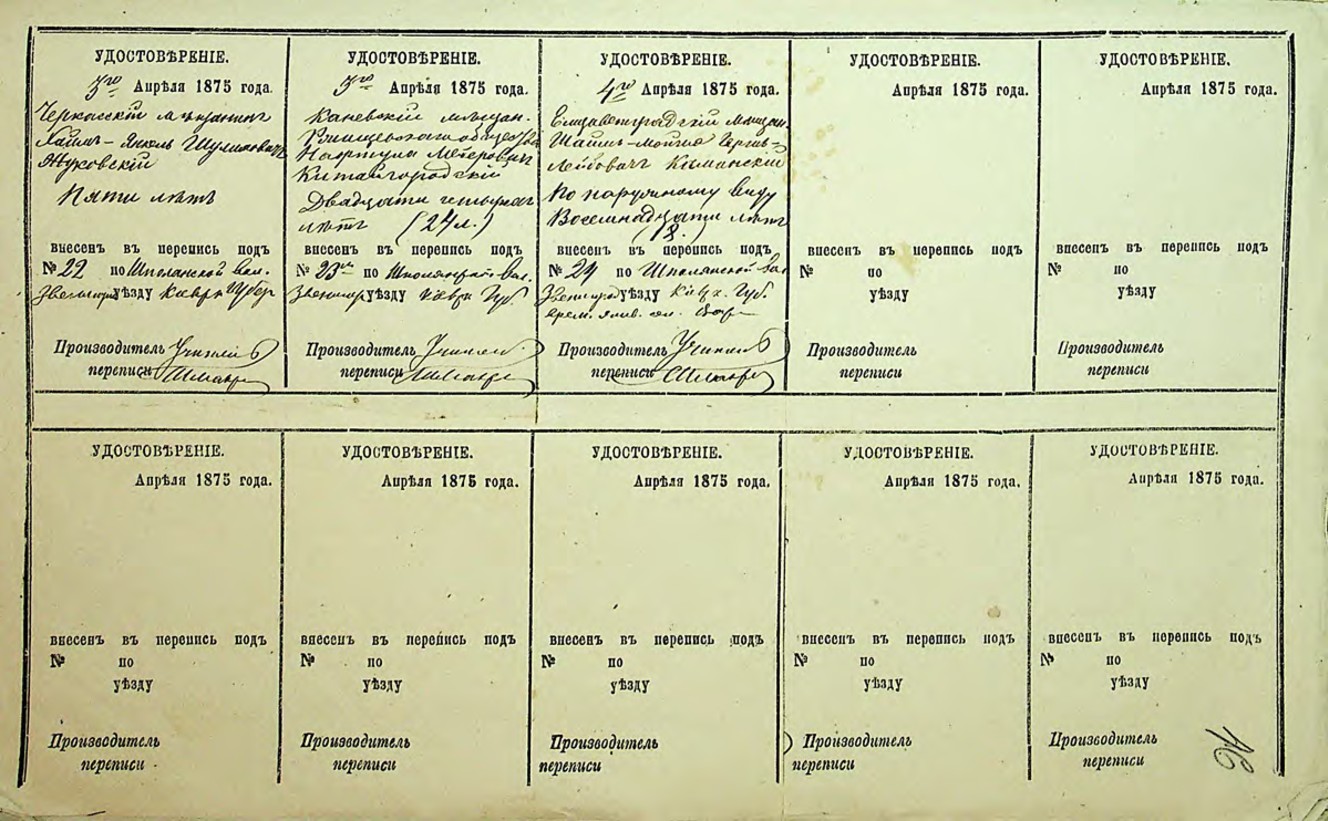 УДОСТОВѢРЕНІЕ.
3го Апрѣля 1875 года.
Черкасскій мѣщанинъ
Хаимъ-Янкель Шулимовичъ
Жуковскій
Пяти лѣтъ
внесенъ въ перепись подъ
№ 22 по Шполянской Вол.
уѣзду Губер
Производитель
переписи
УДОСТОВѢРЕНІЕ.
3го Апрѣля 1875 года.
Каневскій мѣщан.
Мейеровичъ
Китайгородскій
Двадцати четырехъ
лѣтъ (24 л.)
внесенъ въ перепись подъ
№ 23 по Вол.
уѣзду Губ.
Производитель
переписи
УДОСТОВѢРЕНІЕ.
4го Апрѣля 1875 года.
Елизаветградскій Мѣщан.
Лейбовичъ
По наружному виду
Восемнадцати лѣтъ
внесенъ въ перепись подъ
№ 24 по Шполянской Вол
уѣзду Губ.
Производитель
переписи
УДОСТОВѢРЕНІЕ.
Апрѣля 1875 года.
внесенъ въ перепись подъ
№ по
уѣзду
Производитель
переписи
УДОСТОВѢРЕНІЕ.
Апрѣля 1875 года.
внесенъ въ перепись подъ
№ по
уѣзду
Производитель
переписи
УДОСТОВѢРЕНІЕ.
Апрѣля 1875 года.
внесенъ въ перепись подъ
№ по
уѣзду
Производитель
переписи
УДОСТОВѢРЕНІЕ.
Апрѣля 1875 года.
внесенъ въ перепись подъ
№ по
уѣзду
Производитель
переписи
УДОСТОВѢРЕНІЕ.
Апрѣля 1875 года.
внесенъ въ перепись подъ
№ по
уѣзду
Производитель
переписи
УДОСТОВѢРЕНІЕ.
Апрѣля 1875 года.
внесенъ въ перепись подъ
№ по
уѣзду
Производитель
переписи
УДОСТОВѢРЕНІЕ.
Апрѣля 1875 года.
внесенъ въ перепись подъ
№ по
уѣзду
Производитель
переписи